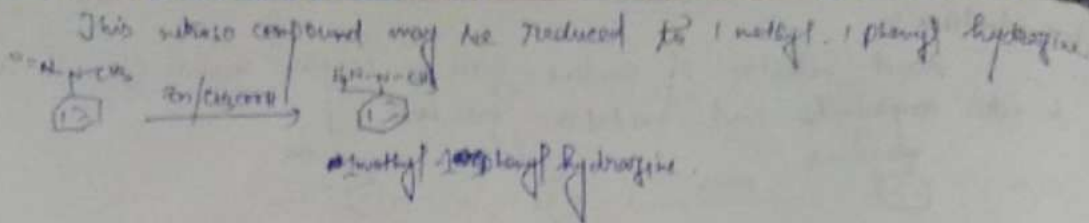 This nitroso compound may be reduced to 1 methyl. 1 phenyl hydrazine
O=N-N-CH3 H2N-N-CH3
Zn/CH3COOH
1methyl 1 phenyl hydrazine.